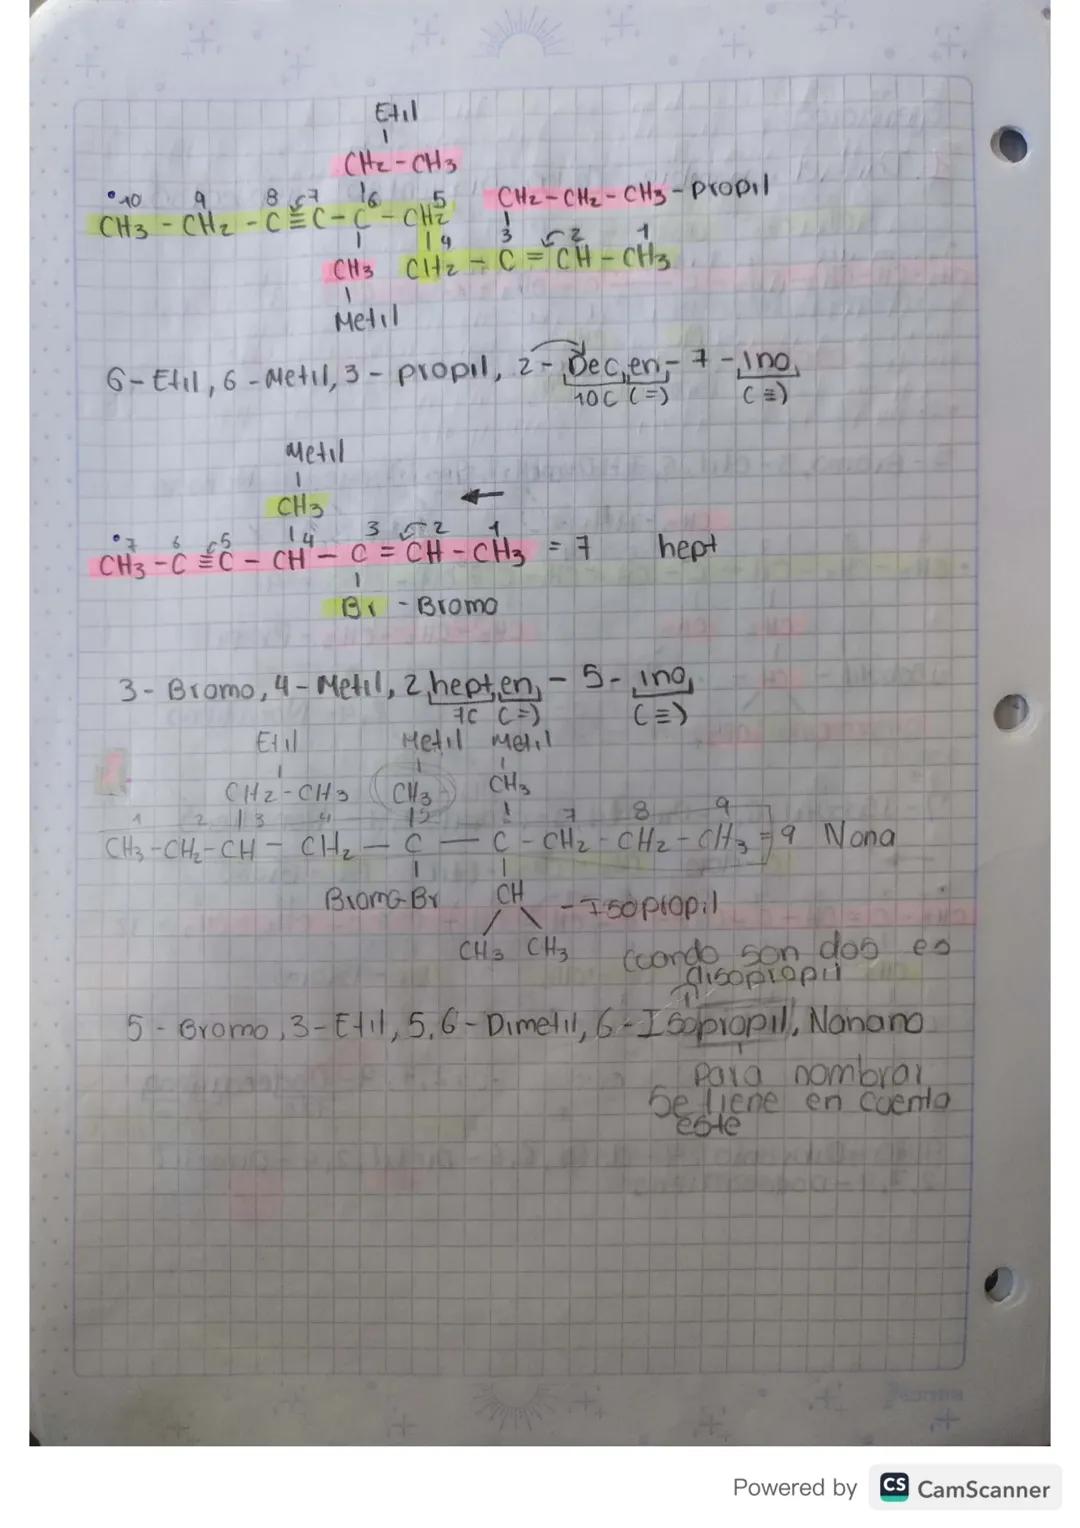 Etil
CH2-CH3
10 9 8 7 6 5 CH2-CH2-CH3-propil
CH3-CH2-C≡C-C-CH2
4 3 2 1
CH3 CH2-C=CH-CH3
Metil
6-Etil, 6-Metil, 3-propil, 2-Dec,en,-7-,ino,
10C (=) (C≡)
Metil
CH3
7 6 5 4 3 2 1
CH3-C≡C-CH-C=CH-CH3 = 7 hept
Br-Bromo
3-Bromo, 4-Metil, 2,hept,en,-5-,ino,
7C (C=) (C≡)
Etil Metil Metil
CH2-CH3 CH3 CH3
1 2 3 4 5 7 8 9
CH3-CH2-CH-CH2-C-C-CH2-CH2-CH3=9 Nona
Bromo-Br CH -Isopropil
CH3 CH3 cuando son dos es
disopropil
5-Bromo, 3-Etil, 5,6-Dimetil, 6-Isopropil, Nonano
para nombrar
Se tiene en cuenta
este
Powered by CS CamScanner